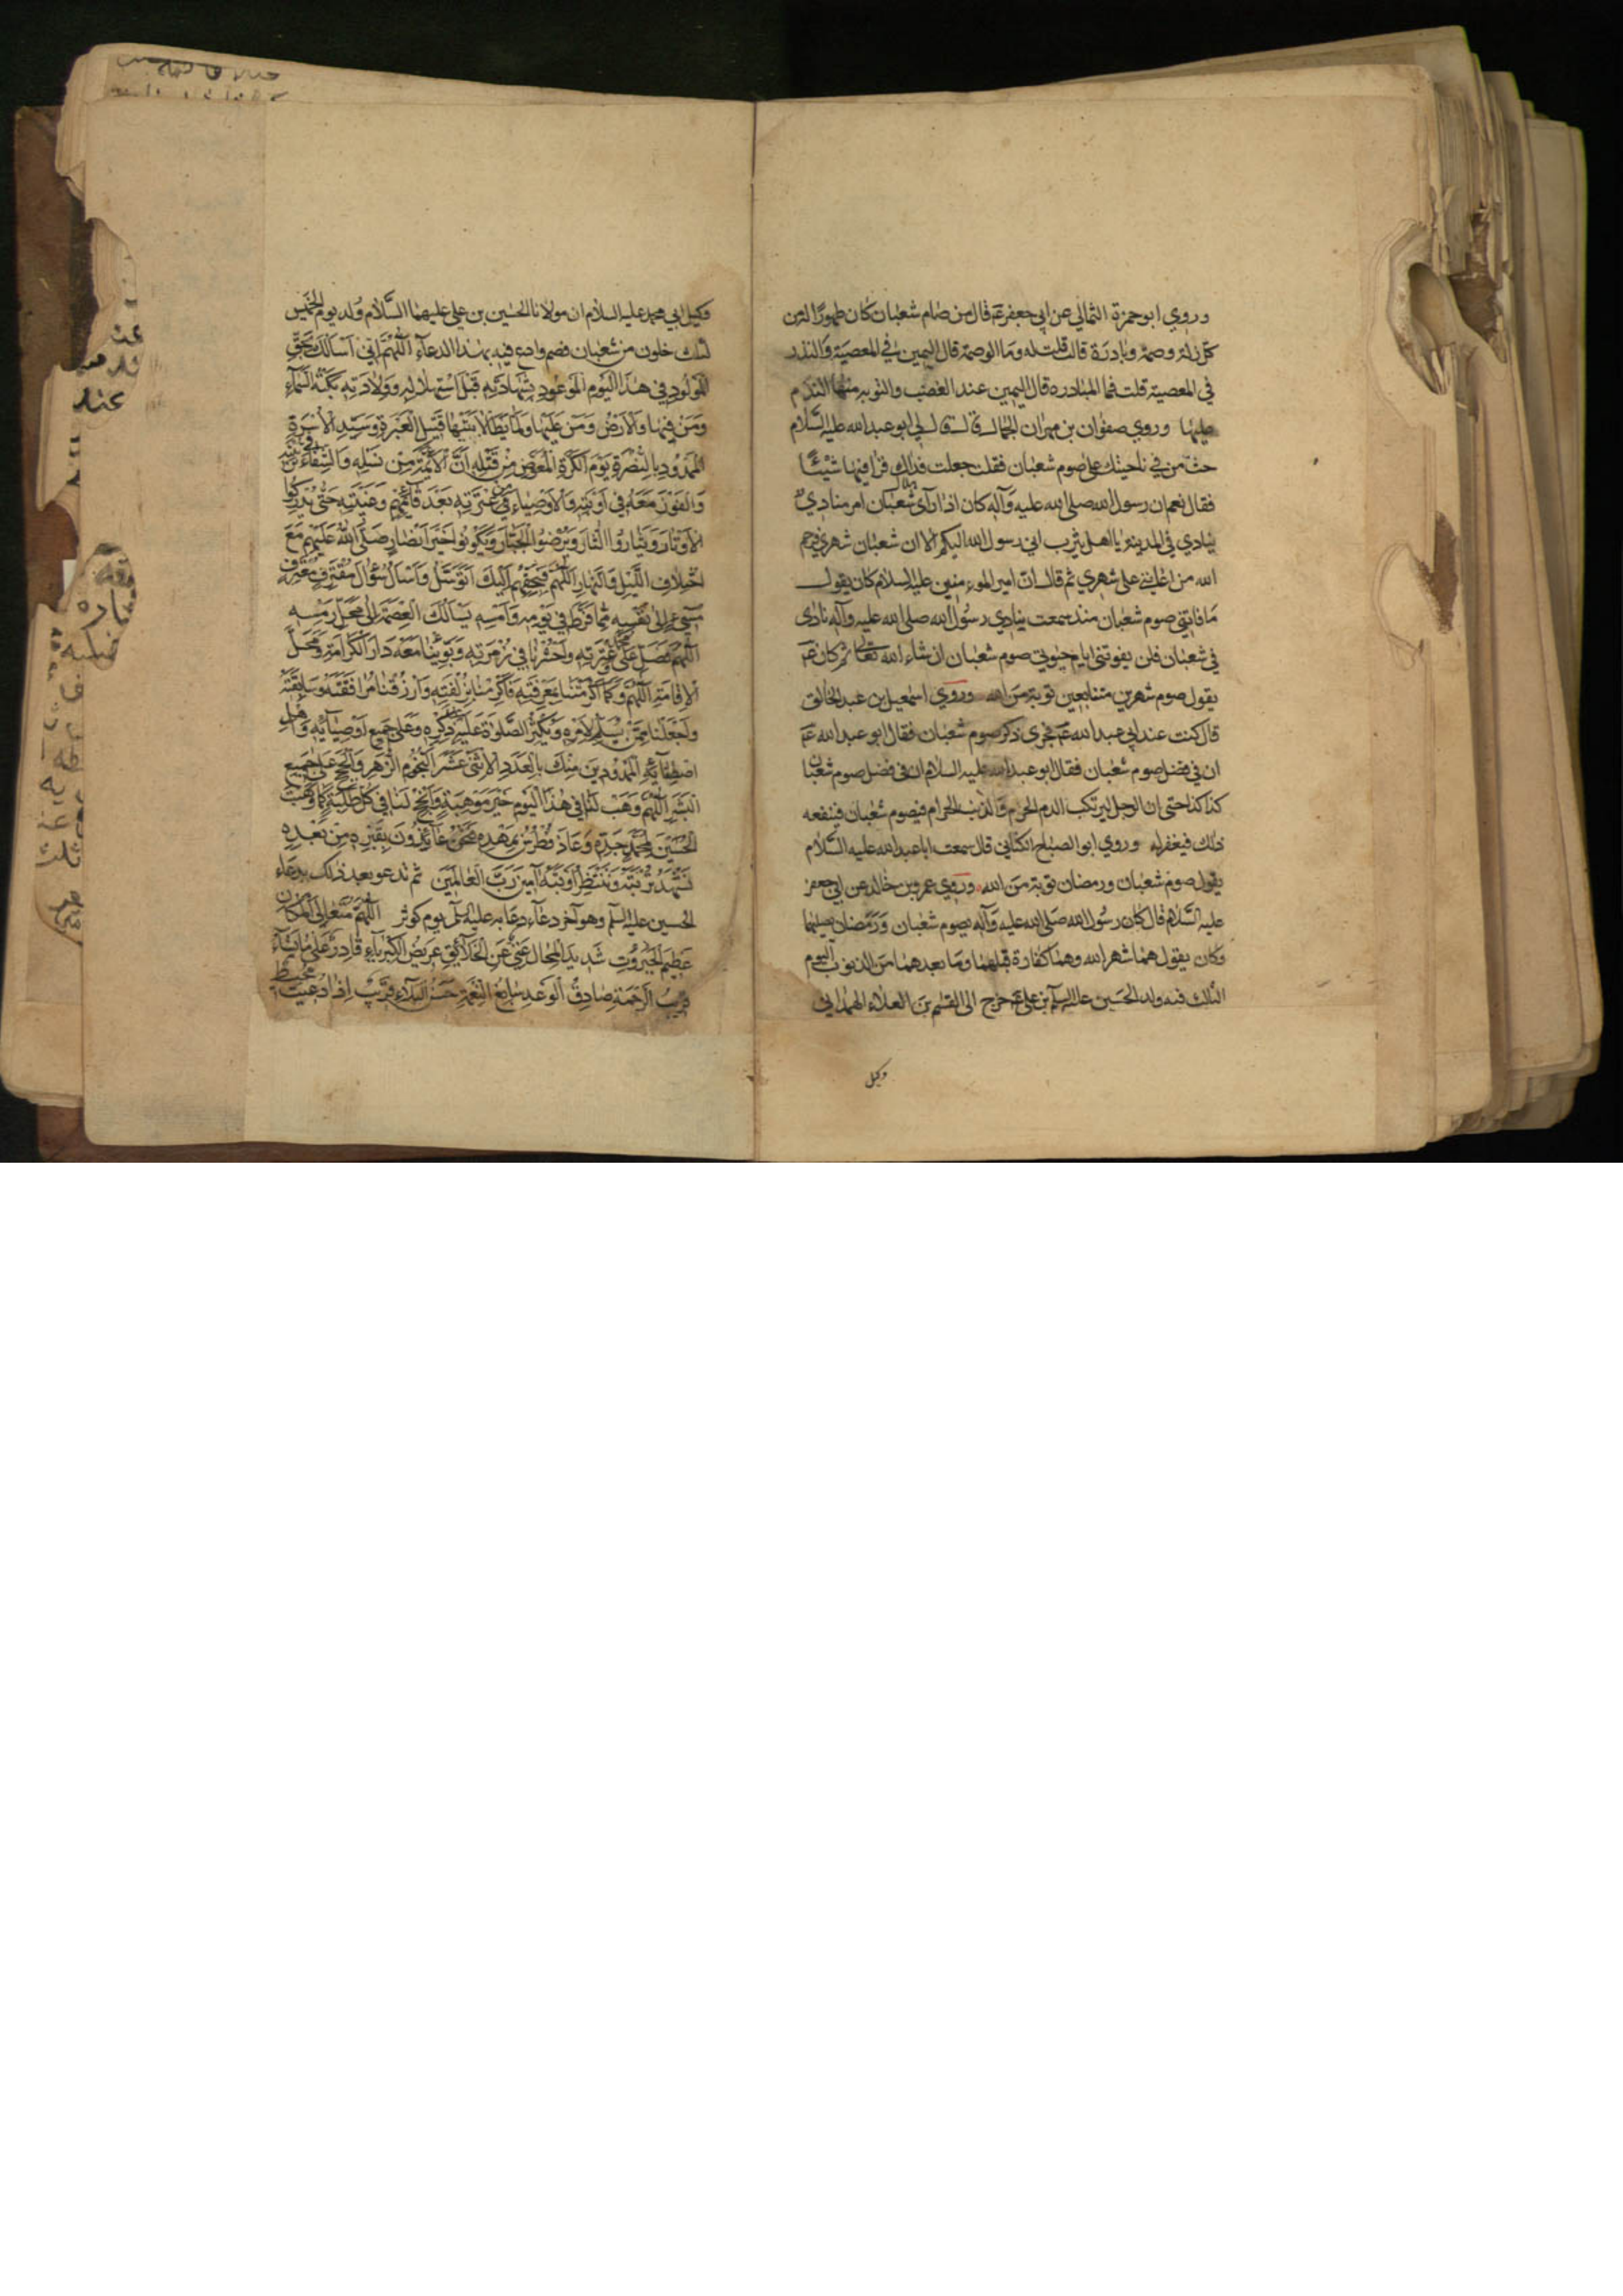 وروي ابو حمزة الثمالي عن ابي جعفر عم قال من صام شعبان كان طهورا له من
كل زلة وصمة وبادرة قال قلت له وما الوصمة قال اليمين في المعصية والنذر
في المعصية قلت فما البادره قال اليمين عند الغضب والتوبه منها الندم
عليها وروي صفوان بن مهران الجمال قال قال لي ابو عبد الله عليه السلام
حث من في ناحيتك على صوم شعبان فقلت جعلت فداك ترى فيها شيئا
فقال نعم ان رسول الله صلى الله عليه وآله كان اذا رآى هلال شعبان امر مناديا
ينادي في المدينة يا اهل يثرب اني رسول الله اليكم الا ان شعبان شهري فرحم
الله من اعانني على شهري ثم قال ان امير المومنين عليه السلام كان يقول
ما فاتني صوم شعبان منذ سمعت منادي رسول الله صلى الله عليه وآله نادى
في شعبان فلن يفوتني ايام حيوتي صوم شعبان ان شاء الله تعالى ثم كان عم
يقول صوم شهرين متتابعين توبة من الله وروي اسمعيل بن عبد الخالق
قال كنت عند ابي عبد الله عم فجرى ذكر صوم شعبان فقال ابو عبد الله عم
ان في فضل صوم شعبان فقال ابو عبد الله عليه السلام ان في فضل صوم شعبان
كذا كذا حتى ان الرجل ليرتكب الدم الحرام والذنب الحرام فيصوم شعبان فينفعه
ذلك فيغفر له وروي ابو الصباح الكناني قال سمعت ابا عبد الله عليه السلام
يقول صوم شعبان ورمضان توبة من الله وروي عمرو بن خالد عن ابي جعفر
عليه السلام قال كان رسول الله صلى الله عليه وآله يصوم شعبان ورمضان يصلهما
وكان يقول هما شهر الله وهما كفارة قبلهما وما بعدهما من الذنوب اليوم
الثالث فيه ولد الحسين عليه السلم بن علي عم خرج الى القسم بن العلاء الهمداني
وكيل
وكيل ابي محمد عليه السلام ان مولانا الحسين بن علي عليهما السلام ولد يوم الخميس
لثلث خلون من شعبان فصم وادع فيه بهذا الدعاء اللهم اني اسالك بحق
المولود في هذا اليوم الموعود بشهادته قبل استهلاله وولادته بكته السماء
ومن فيها والارض ومن عليها ولما يطا لابتيها قتيل العبرة وسيد الاسرة
الممدود بالنصرة يوم الكرة المعوض من قتله ان الائمة من نسله والشفاء في تربته
والفوز معه في اوبته والاوصياء من عترته بعد قائمهم وغيبته حتى يدركوا
الاوتار ويثاروا الثار ويرضوا الجبار ويكونوا خير انصار صلى الله عليهم مع
اختلاف الليل والنهار اللهم فبحقهم اليك اتوسل واسال سؤال مقترف معترف
مسيء الى نفسه مما فرط في يومه وامسه يسالك العصمة الى محل رمسه
اللهم فصل على محمد وعترته واحشرنا في زمرته وبوئنا معه دار الكرامة ومحل
الاقامة اللهم وكما اكرمتنا بمعرفته فاكرمنا بزلفته وارزقنا مرافقته وسابقته
واجعلنا ممن يسلم لامره ويكثر الصلوة عليه عند ذكره وعلى جميع اوصيائه واهل
اصطفائه الممدودين منك بالعدد الاثنى عشر النجوم الزهر والحجج على جميع
البشر اللهم وهب لنا في هذا اليوم خير موهبة وانجح لنا فيه كل طلبة كما وهبت
الحسين لمحمد جده وعاذ فطرس بمهده فنحن عائذون بقبره من بعده
نشهد تربته وننتظر اوبته آمين رب العالمين ثم تدعو بعد ذلك بدعاء
الحسين عليه السلم وهو آخر دعاء دعا به عليه السلم يوم كوثر اللهم متعالي المكان
عظيم الجبروت شديد المحال غني عن الخلائق عريض الكبرياء قادر على ما تشاء
قريب الرحمة صادق الوعد سابغ النعمة حسن البلاء قريب اذا دعيت محيط
عند
عند